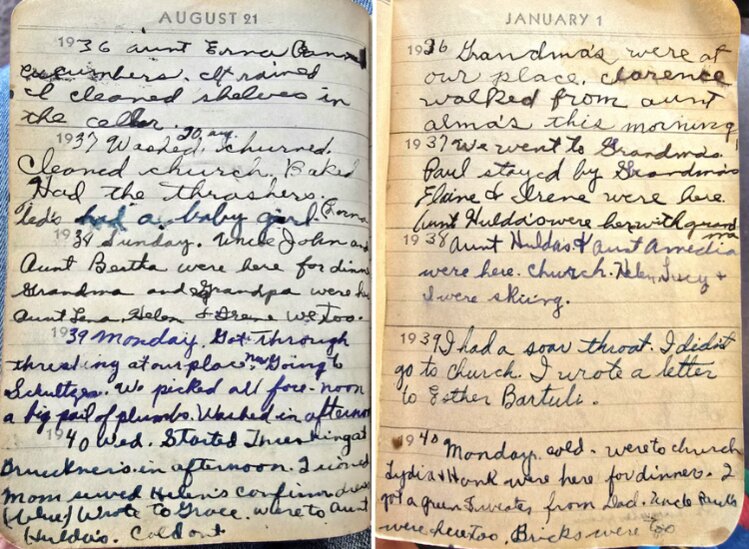 AUGUST 21
1936 aunt Erna
cucumbers. It rained
I cleaned shelves in
the cellar.
1937 Washed, churned.
Cleaned church. Baked
Had the thrashers.
Ted's had a baby girl.
1938 Sunday. Uncle John and
Aunt Bertha were here for dinn
Grandma and Grandpa were
Aunt Lena Helen & Irene
1939 Monday. Got through
threshing at our place. now Going to
Schultzes. We picked all fore-noon
a big pail of plumbs. Washed in afternoon
1940 Wed. Started Threshing at
Brueckner's in afternoon. I ironed
Mom sewed Helen's confirm dress
(blue) Wrote to Grace. were to Aunt
Hulda's. Cold out
JANUARY 1
1936 Grandma's were at
our place. Clarence
walked from aunt
alma's this morning
1937 We went to Grandma's.
Paul stayed by Grandma's
Elaine & Irene were here.
Aunt Hulda's were here with grand
ma
1938 Aunt Hulda's & Aunt Amedia
were here. Church. Helen, Lucy +
I were skiing.
1939 I had a soar throat. I didn't
go to church. I wrote a letter
to Esther Bartuli.
1940 Monday. cold. were to church
Lydia & Hank were here for dinner. I
got a green sweater from Dad. Uncle Paul's
were here too. Bricks were too